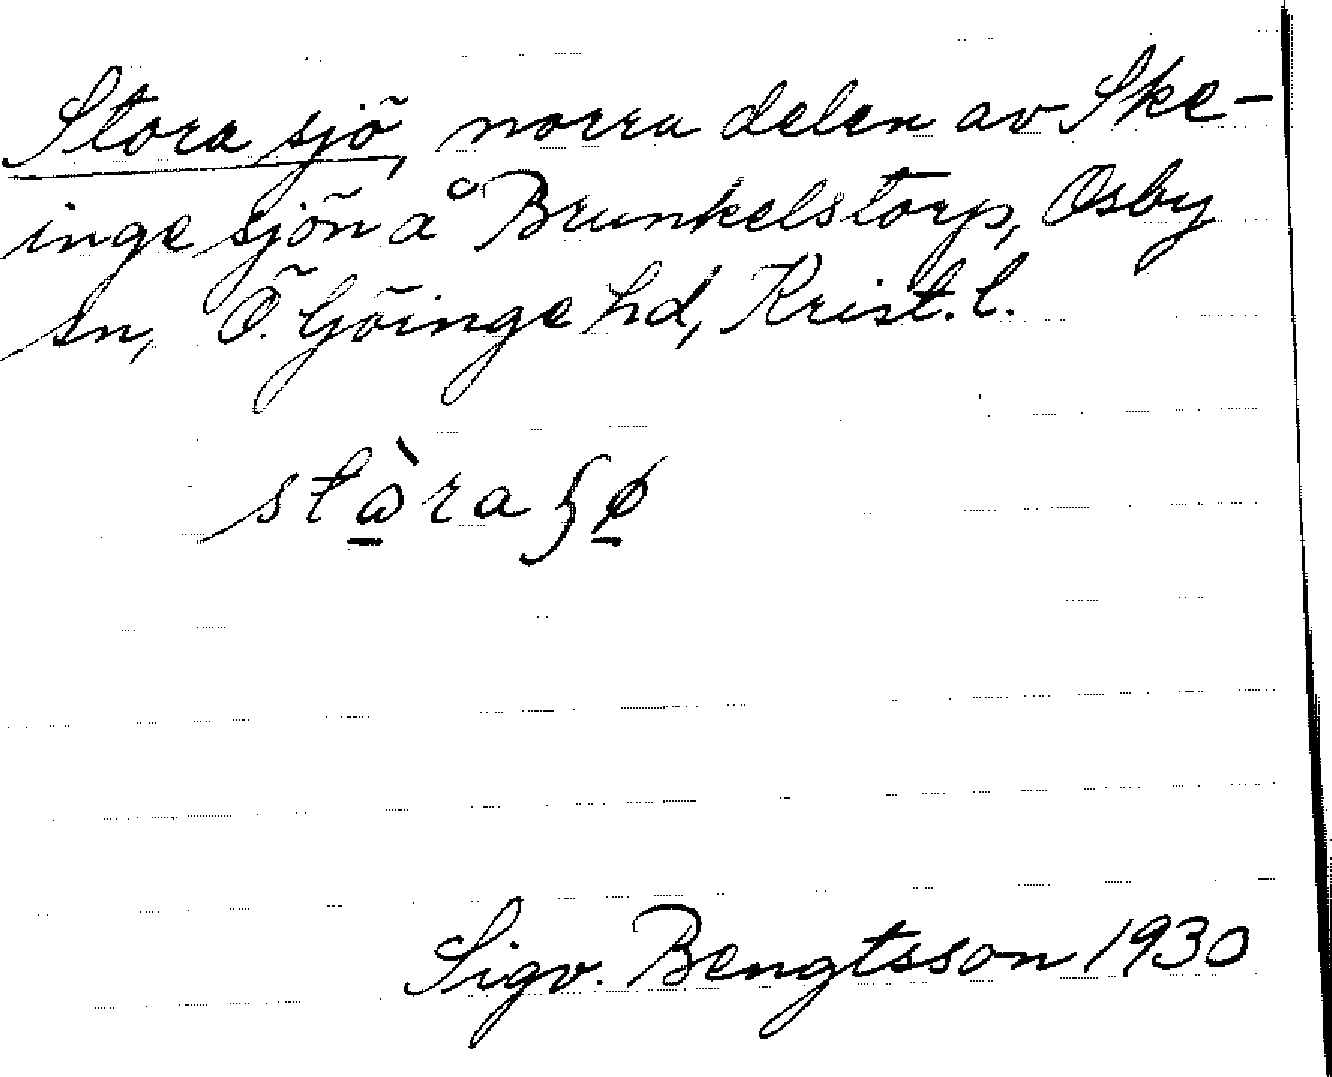 Stora sjö, norra delen av Ske-
inge sjön å Brunkelstorp, Osby
sn, Ö. Göinge hd, Krist. l.
Sigv. Bengtsson 1930